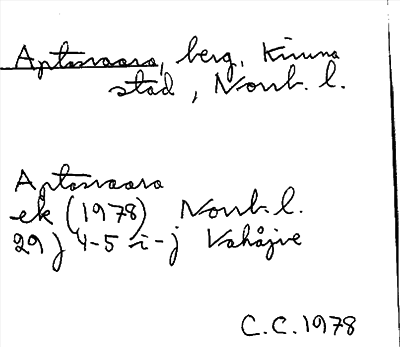 Aptasvaara, berg, Kiruna
stad, Norrb. l.
Aptasvaara
ek (1978) Norrb. l.
29J 4-5 i-j Vahåjve
C.C. 1978